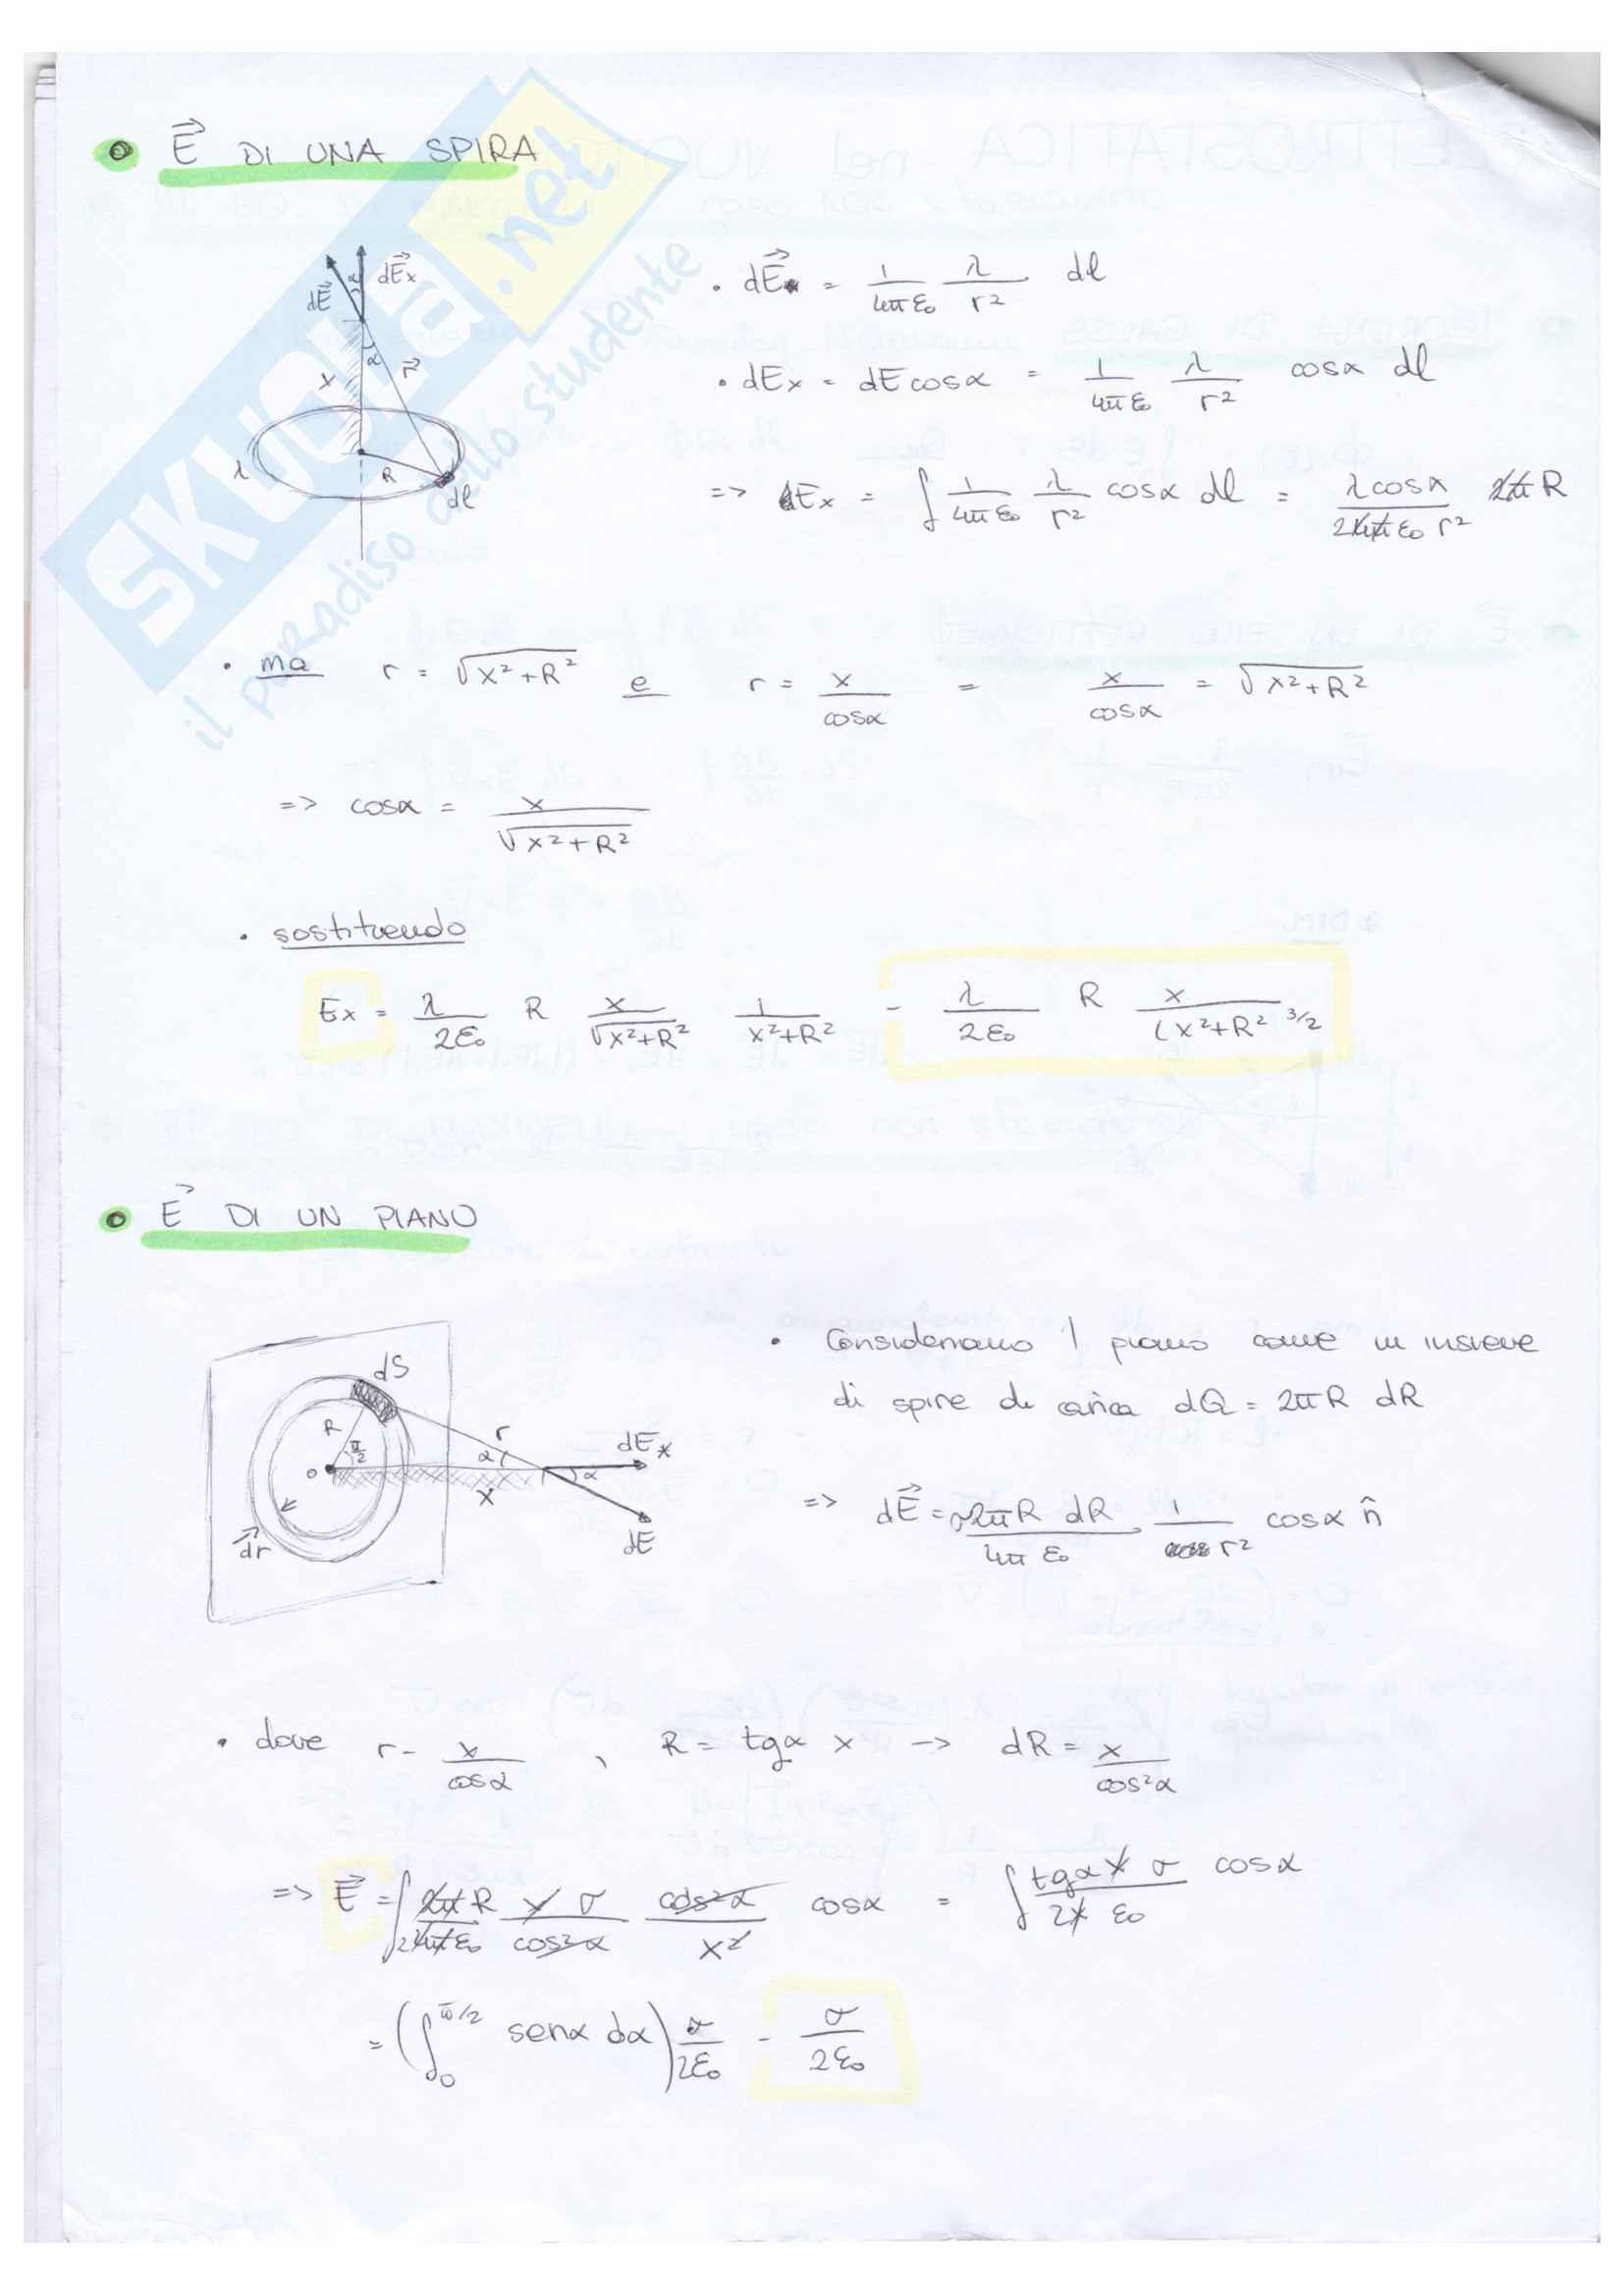 E⃗ DI UNA SPIRA
SKUOLA.net
il paradiso dello studente
dE⃗ dE⃗x α
α r⃗ x
λ R dl
• dE⃗ = 1/(4πε₀) λ/r² dl
• dEx = dE cosα = 1/(4πε₀) λ/r² cosα dl
=> Ex = ∫ 1/(4πε₀) λ/r² cosα dl = λcosα/(2 4π ε₀ r²) 2π R
• ma r = √(x²+R²) e r = x/cosα = x/cosα = √(x²+R²)
=> cosα = x/√(x²+R²)
• sostituendo
Ex = λ/(2ε₀) R x/√(x²+R²) 1/(x²+R²) = λ/(2ε₀) R x/(x²+R² ^3/2
E⃗ DI UN PIANO
dS
R π/2 r α dEx
o x α
dr⃗ dE
• Consideriamo 1 piano come un insieme
di spire di carica dQ = 2πR dR
=> dE⃗ = σ2πR dR/(4π ε₀) 1/r² cosα n̂
• dove r = x/cosα , R = tgα x -> dR = x/cos²α
=> E⃗ = ∫ 2πR/(2 4πε₀) x σ/cos²α cos²α/x² cosα = ∫ tgα x σ/(2x ε₀) cosα
= (∫₀^π/2 senα dα) σ/(2ε₀) = σ/(2ε₀)